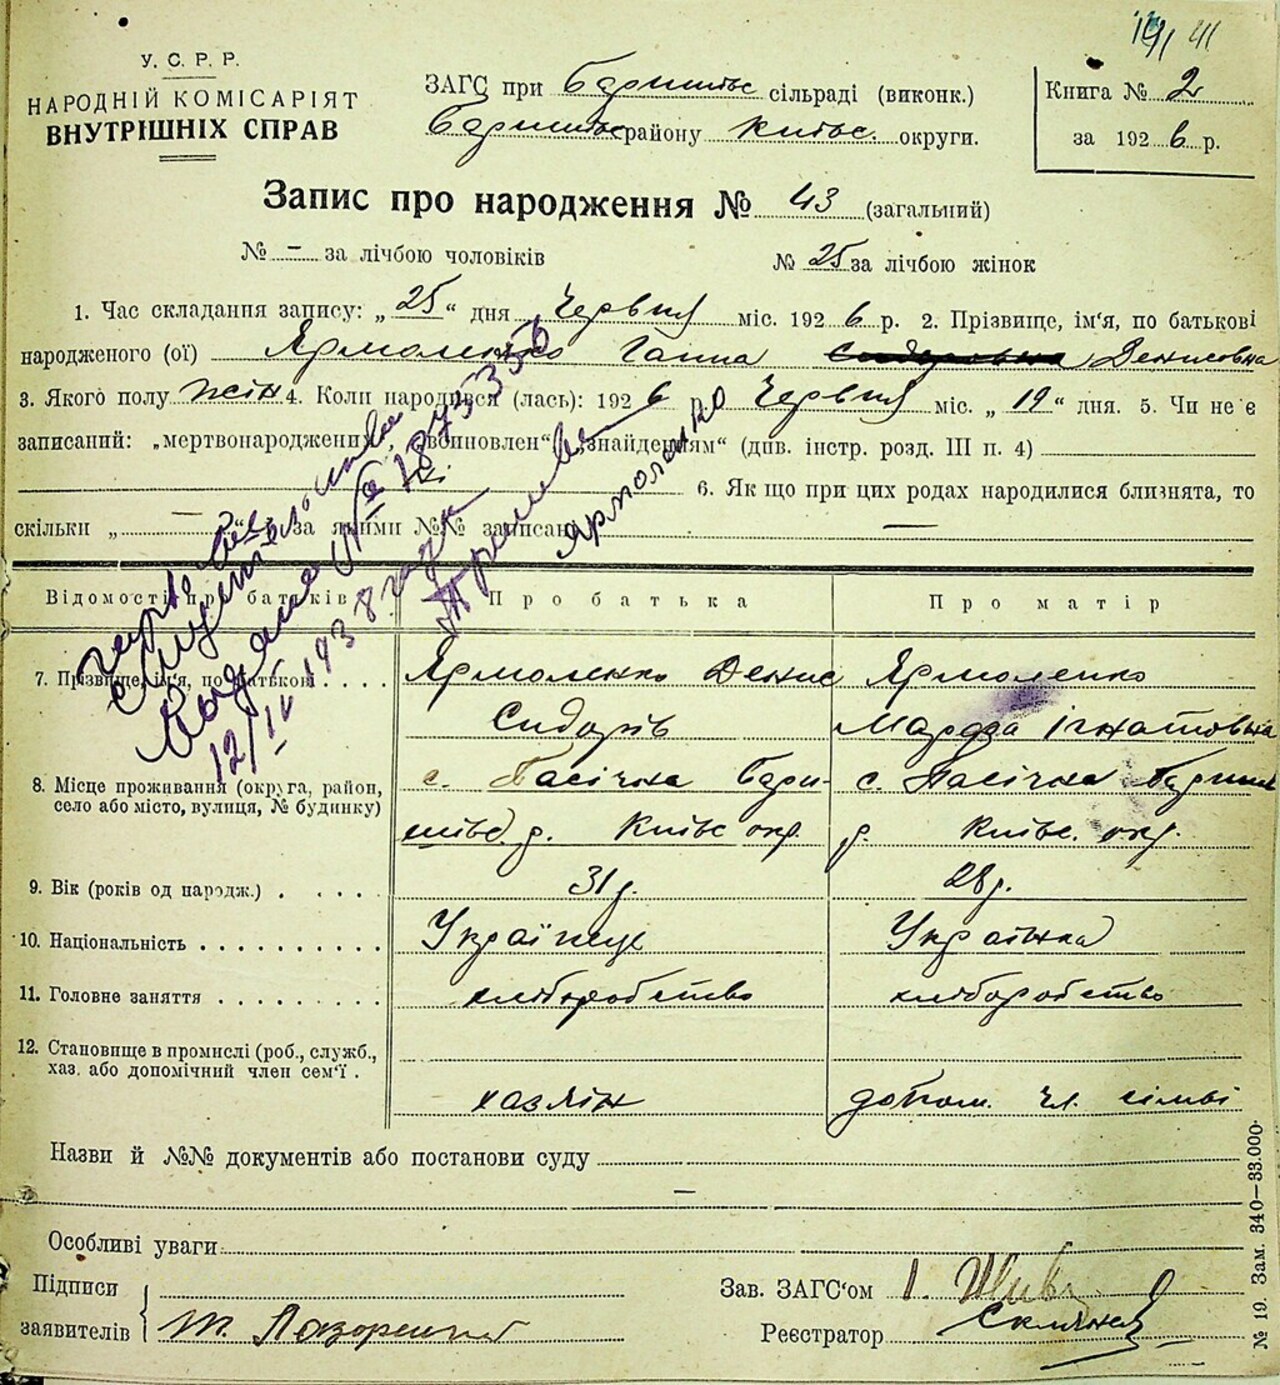 У. С. Р. Р.
НАРОДНІЙ КОМІСАРІЯТ
ВНУТРІШНІХ СПРАВ
41
ЗАГС при Баришівс сільраді (виконк.)
Баришівс району Київс. округи.
Книга № 2
за 1926 р.
Запис про народження № 43 (загальний)
№ – за лічбою чоловіків
№ 25 за лічбою жінок
1. Час складання запису: „25“ дня Червня міс. 1926 р. 2. Прізвище, ім‘я, по батькові
народженого (ої) Ярмоленко Ганна Сидоровна Денисовна
3. Якого полу жін 4. Коли народився (лась): 1926 р. Червня міс. „19“ дня. 5. Чи не є
записаний: „мертвонароджений“, „знайденям“ (див. інстр. розд. III п. 4)
6. Як що при цих родах народилися близнята, то
скільки „ – “ за якими №№ записані –
Відомості про батьків
Про батька
Про матір
7. Прізвище, ім‘я, по батькові
Ярмоленко Денис
Сидорів
Ярмоленко
Марфа Ігнатовна
8. Місце проживання (округа, район,
село або місто, вулиця, № будинку)
с. Пасічна Бари-
шівс. р. Київс окр.
с. Пасічна Баришів
р. Київс. окр.
9. Вік (років од народж.)
31 р.
28 р.
10. Національність
Українець
Українка
11. Головне заняття
хліборобство
хліборобство
12. Становище в промислі (роб., служб.,
хаз. або допомічний член сем‘ї
хазяін
допом. чл. сімьі
12/IV 1938 года
Ярмоленко
Назви й №№ документів або постанови суду
–
Особливі уваги
Підписи
заявителів
Зав. ЗАГС‘ом І.
Реєстратор
№ 19. Зам. 340—33.000.